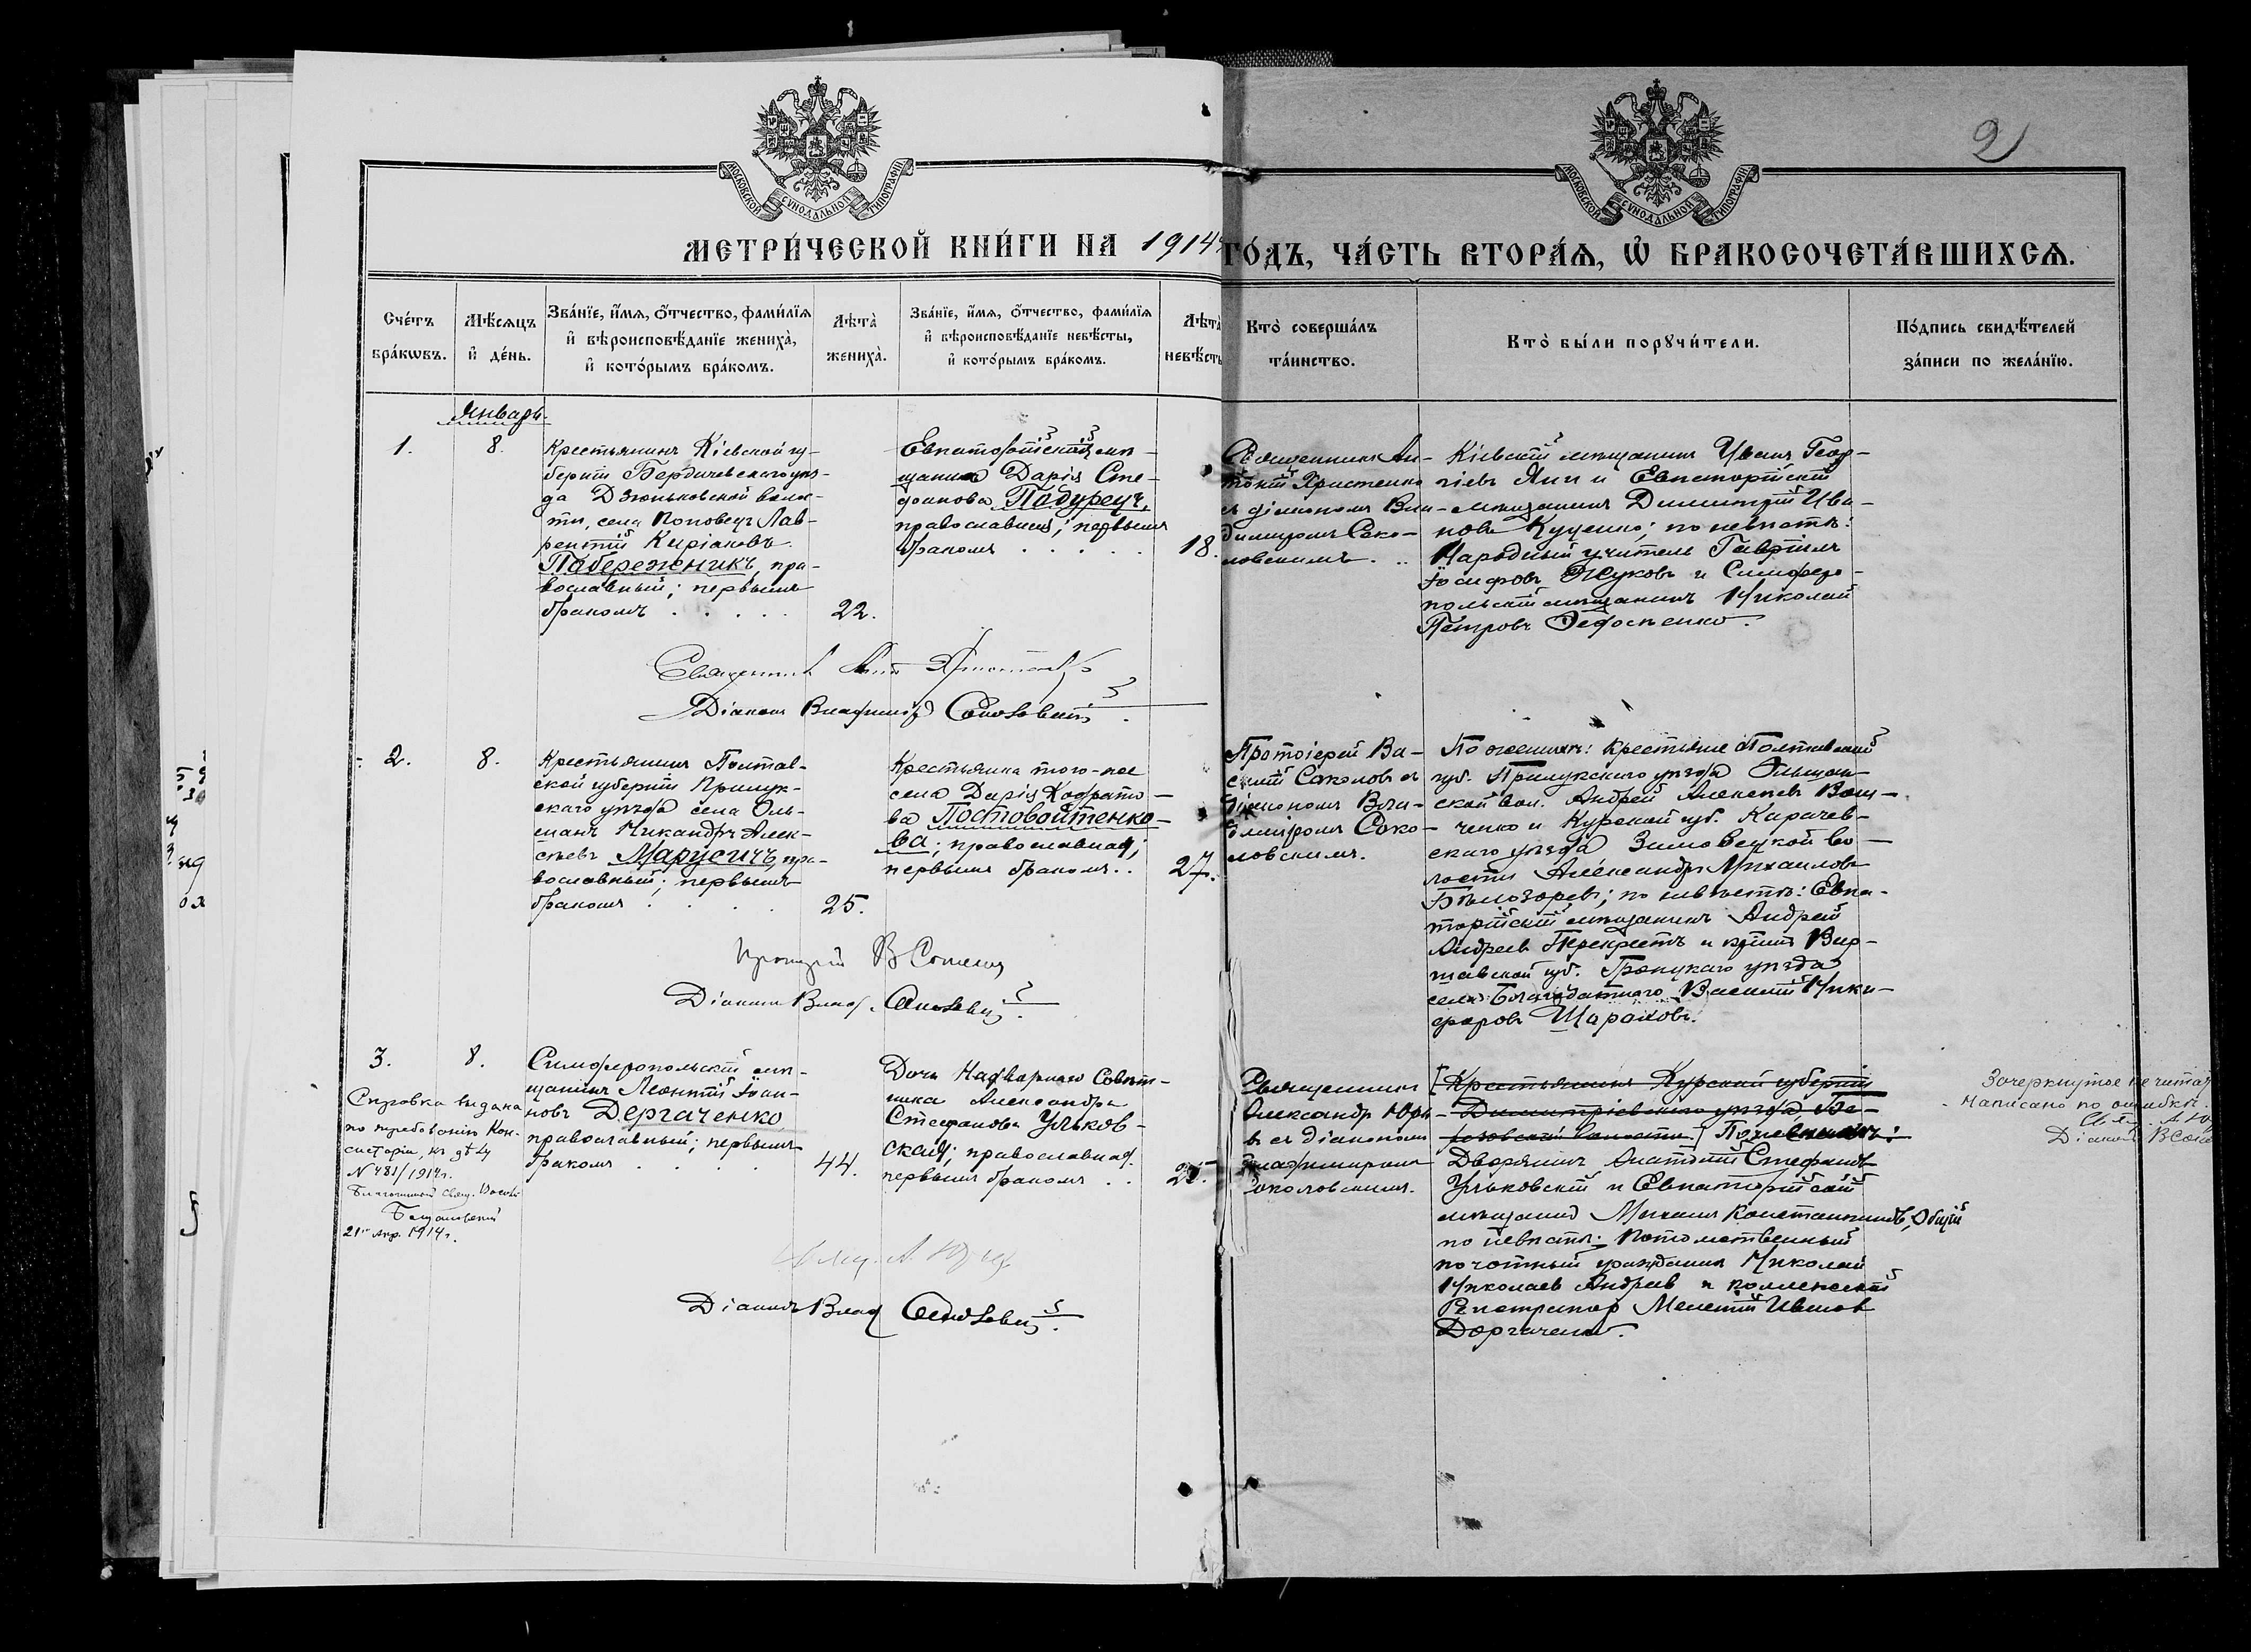 2
МОСКОВСКОЙ СѴНОДАЛЬНОЙ ТИПОГРАФІИ
МОСКОВСКОЙ СѴНОДАЛЬНОЙ ТИПОГРАФІИ
МЕТРИ́ЧЕСКОЙ КНИ́ГИ НА 1914 ГО́ДЪ, ЧА́СТЬ ВТОРА́Ѧ, Ѽ БРАКОСОЧЕТА́ВШИХСѦ.
Сче́тъ
бра́кѡвъ.
Мѣ́сѧцъ
и҆ де́нь.
Зва́нїе, и҆́мѧ, ѻ҆́тчество, фами́лїѧ
и҆ вѣроисповѣ́данїе жениха̀,
и҆ кото́рымъ бра́комъ.
Лѣта̀
жениха̀.
Зва́нїе, и҆́мѧ, ѻ҆́тчество, фами́лїѧ
и҆ вѣроисповѣ́данїе невѣ́сты,
и҆ кото́рымъ бра́комъ.
Лѣта̀
невѣ́сты
Кто̀ соверша́лъ
та́инство.
Кто̀ бы́ли порꙋчи́тели.
По́дпись свидѣ́телей
за́писи по жела́нїю.
Январь.
1.
8.
Крестьянинъ Кіевской гу-
берніи Бердичевскаго уѣз-
да Дзюньковской волос-
ти, села Поповецъ Лав-
рентій Киріаковъ
Побережникъ, пра-
вославный; первымъ
бракомъ . . . .
22.
Евпаторійская мѣ-
щанка Дарія Сте-
фанова Подурецъ,
православная; первымъ
бракомъ . . . . .
18.
Священникъ Ан-
тоній Христенко
съ діакономъ Вла-
димиромъ Соко-
ловскимъ. ..
Кіевскій мѣщанинъ Иванъ Геор-
гіевъ Яни и Евпаторійскій
мѣщанинъ Димитрій Ива-
новъ Куценко; по невѣстѣ:
Народный учитель Гавріилъ
Іосифовъ Жуковъ и Симферо-
польскій мѣщанинъ Николай
Петровъ Федосѣенко.
Священникъ Ант Христенко
Діаконъ Владимір Соколовскій.
2.
8.
Крестьянинъ Полтав-
ской губерніи Прилук-
скаго уѣзда села Оль-
шанъ Никандръ Алек-
сѣевъ Марусичъ, пра-
вославный; первымъ
бракомъ . . . .
25.
Крестьянка того-же
села Дарія Кодрато-
ва Постовойтенко-
ва; православная;
первымъ бракомъ. .
27.
Протоіерей Ва-
силій Соколовъ съ
діакономъ Вла-
диміромъ Соко-
ловскимъ.
По женихѣ: крестьяне Полтавской
губ. Прилукскаго уѣзда Ольшан-
ской вол. Андрей Алексѣевъ Вощ-
ченко и Курской губ. Карачев-
скаго уѣзда Зиновецкой во-
лости Александръ Михаиловъ
Бѣлозоревъ; по невѣстѣ: Евпа-
торійскій мѣщанинъ Андрей
Андреевъ Перекрестъ и крест. Вар-
шавской губ.
уѣзда
села Благодатнаго Василій Ники-
форовъ Шараповъ.
Протоіерей В Соколовъ
Діаконъ Влад. Соколовскій.
3.
8.
Симферопольскій мѣ-
щанинъ Леонтій Іоан-
новъ Дергаченко
православный; первымъ
бракомъ . . . .
44.
Дочь Надворнаго Совѣт-
ника Александра
Стефанова Ульков-
ская; православная
первымъ бракомъ . .
25.
Священникъ
Александръ Юрь-
въ съ діакономъ
Владимиромъ
Соколовскимъ.
Крестьянинъ Курской губерніи
Димитріевскаго уѣзда, Бе-
резовской волости. По женихѣ:
Дворянинъ Анатолій Стефановъ
Ульковскій и Евпаторійскій
мѣщанинъ Михаилъ Константиновъ, Общій
по невѣстѣ: Потомственный
почотный гражданинъ Николай
Николаевъ Андреевъ и Коллежскій
Регистраторъ Мелетій Ивановъ
Доргаченко.
Зачеркнутое не чита
Написано по ошибкѣ.
Діаконъ В Соко
Справка выдана
по требованію Кон-
систоріи, къ дѣлу
N 481/1914 г.
Благочинный свящ.
21го Апр. 1914 г.
Свящ. А. Юрь
Діаконъ Влад Соколовскій.